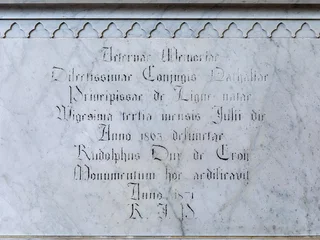 Aeternae Memoriae
Dilectissimae Conjugis Nathaliae
Principissae de Ligne natae
Vigesima tertia mensis Julii die
Anno 1863 defunctae
Rudolphus Dux de Croy
Monumentum hoc aedificavit
Anno 1871
R. I. P.